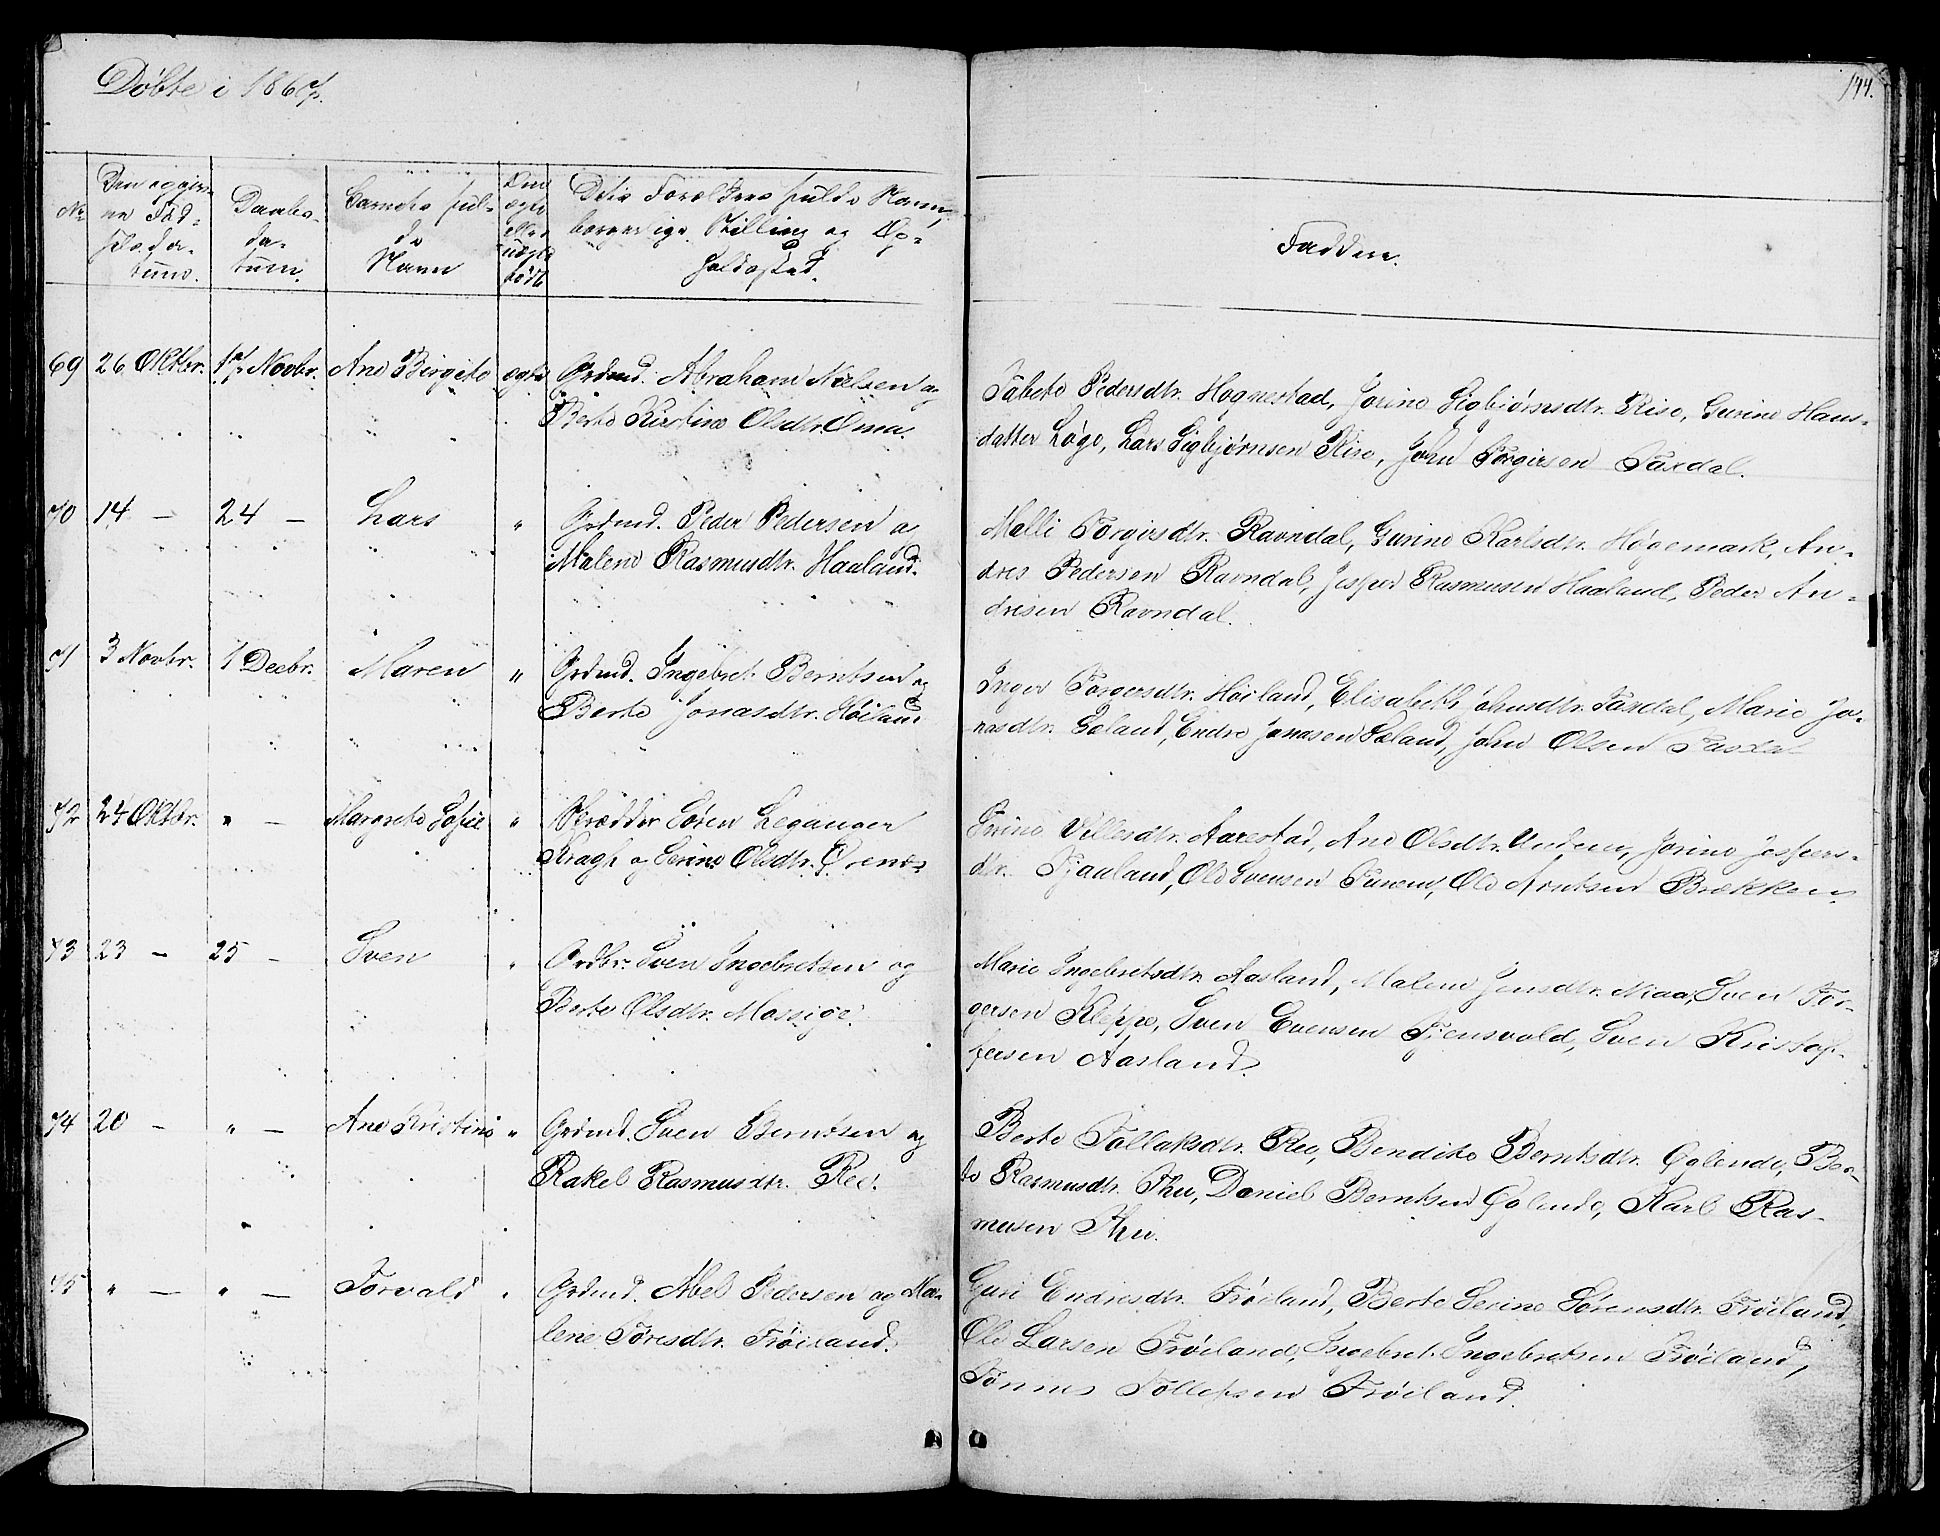 Döbte i 1867.
144.
No
Den opgivne Födselsdatum.
Daabsdatum.
Barnets fulde Navn
Om ægte eller uægte födt
Dets Forældres fulde Navn, borgerlige Stilling og Opholdssted.
Faddere.
69 26 Oktbr. 1ste Novbr. Ane Birgite ægte Grdmd. Abraham Nielsen og
Berte Kirstine Olsdtr. Oma.
Tabete Pedersdtr. Hognestad, Jorine Sigbjørnsdtr. Rise, Gurine Hans-
datter Løge, Lars Sigbjørnsen Rise, John Torgersen Taxdal.
70 14 — 24 — Lars " Grdmd. Peder Pedersen og
Malene Rasmusdtr. Haaland.
Malli Torgersdtr. Ravndal, Gurine Karlsdtr. Høgemark, An-
dres Pedersen Ravndal, Jesper Rasmussen Haaland, Peder An-
dresen Ravndal.
71 3 Novbr. 1 Decbr. Maren " Grdmd. Ingebret Berntsen og
Berte Jonasdtr. Höiland
Inger Torgersdtr. Höiland, Elisabeth Johnsdtr. Taxdal, Marie Jo-
nasdtr. Sæland, Endre Jonasen Sæland, John Olsen Taxdal
72 24 Oktbr. " — Margrete Sofie " Skrædder Sören Leganger
Kragh og Serine Olsdtr.
Serine Villesdtr. Aarestad, Ane Olsdtr. Undem, Jorine Jespers-
dtr. Tjaaland, Ole Svensen Tunem, Ole Arntsen Brækken.
73 23 — 25 — Sven " Grdbr. Sven Ingebretsen og
Berte Olsdtr. Mossige.
Marie Ingebretsdtr. Aasland, Malene Jensdtr. Niaa, Sven Tor-
gersen Kleppe, Sven Evensen Tjensvold, Sven Kristof-
fersen Aasland.
74 20 — " — Ane Kristine " Grdmd. Sven Berntsen og
Rakel Rasmusdtr. Ree.
Berte Tollaksdtr. Ree, Bendite Berntsdtr. Öglende, Ber-
te Rasmusdtr. Thu, Daniel Berntsen Öglende, Karl Ras-
musen Thu.
75 " — " — Torvald " Grdmd. Abel Pedersen og Ma-
lene Töresdtr. Fröiland.
Guri Endresdtr. Fröiland, Berte Serine Sörensdtr. Fröiland,
Ole Larsen Fröiland, Ingebret Ingebretsen Fröiland,
Tönnes Tollefsen Fröiland.